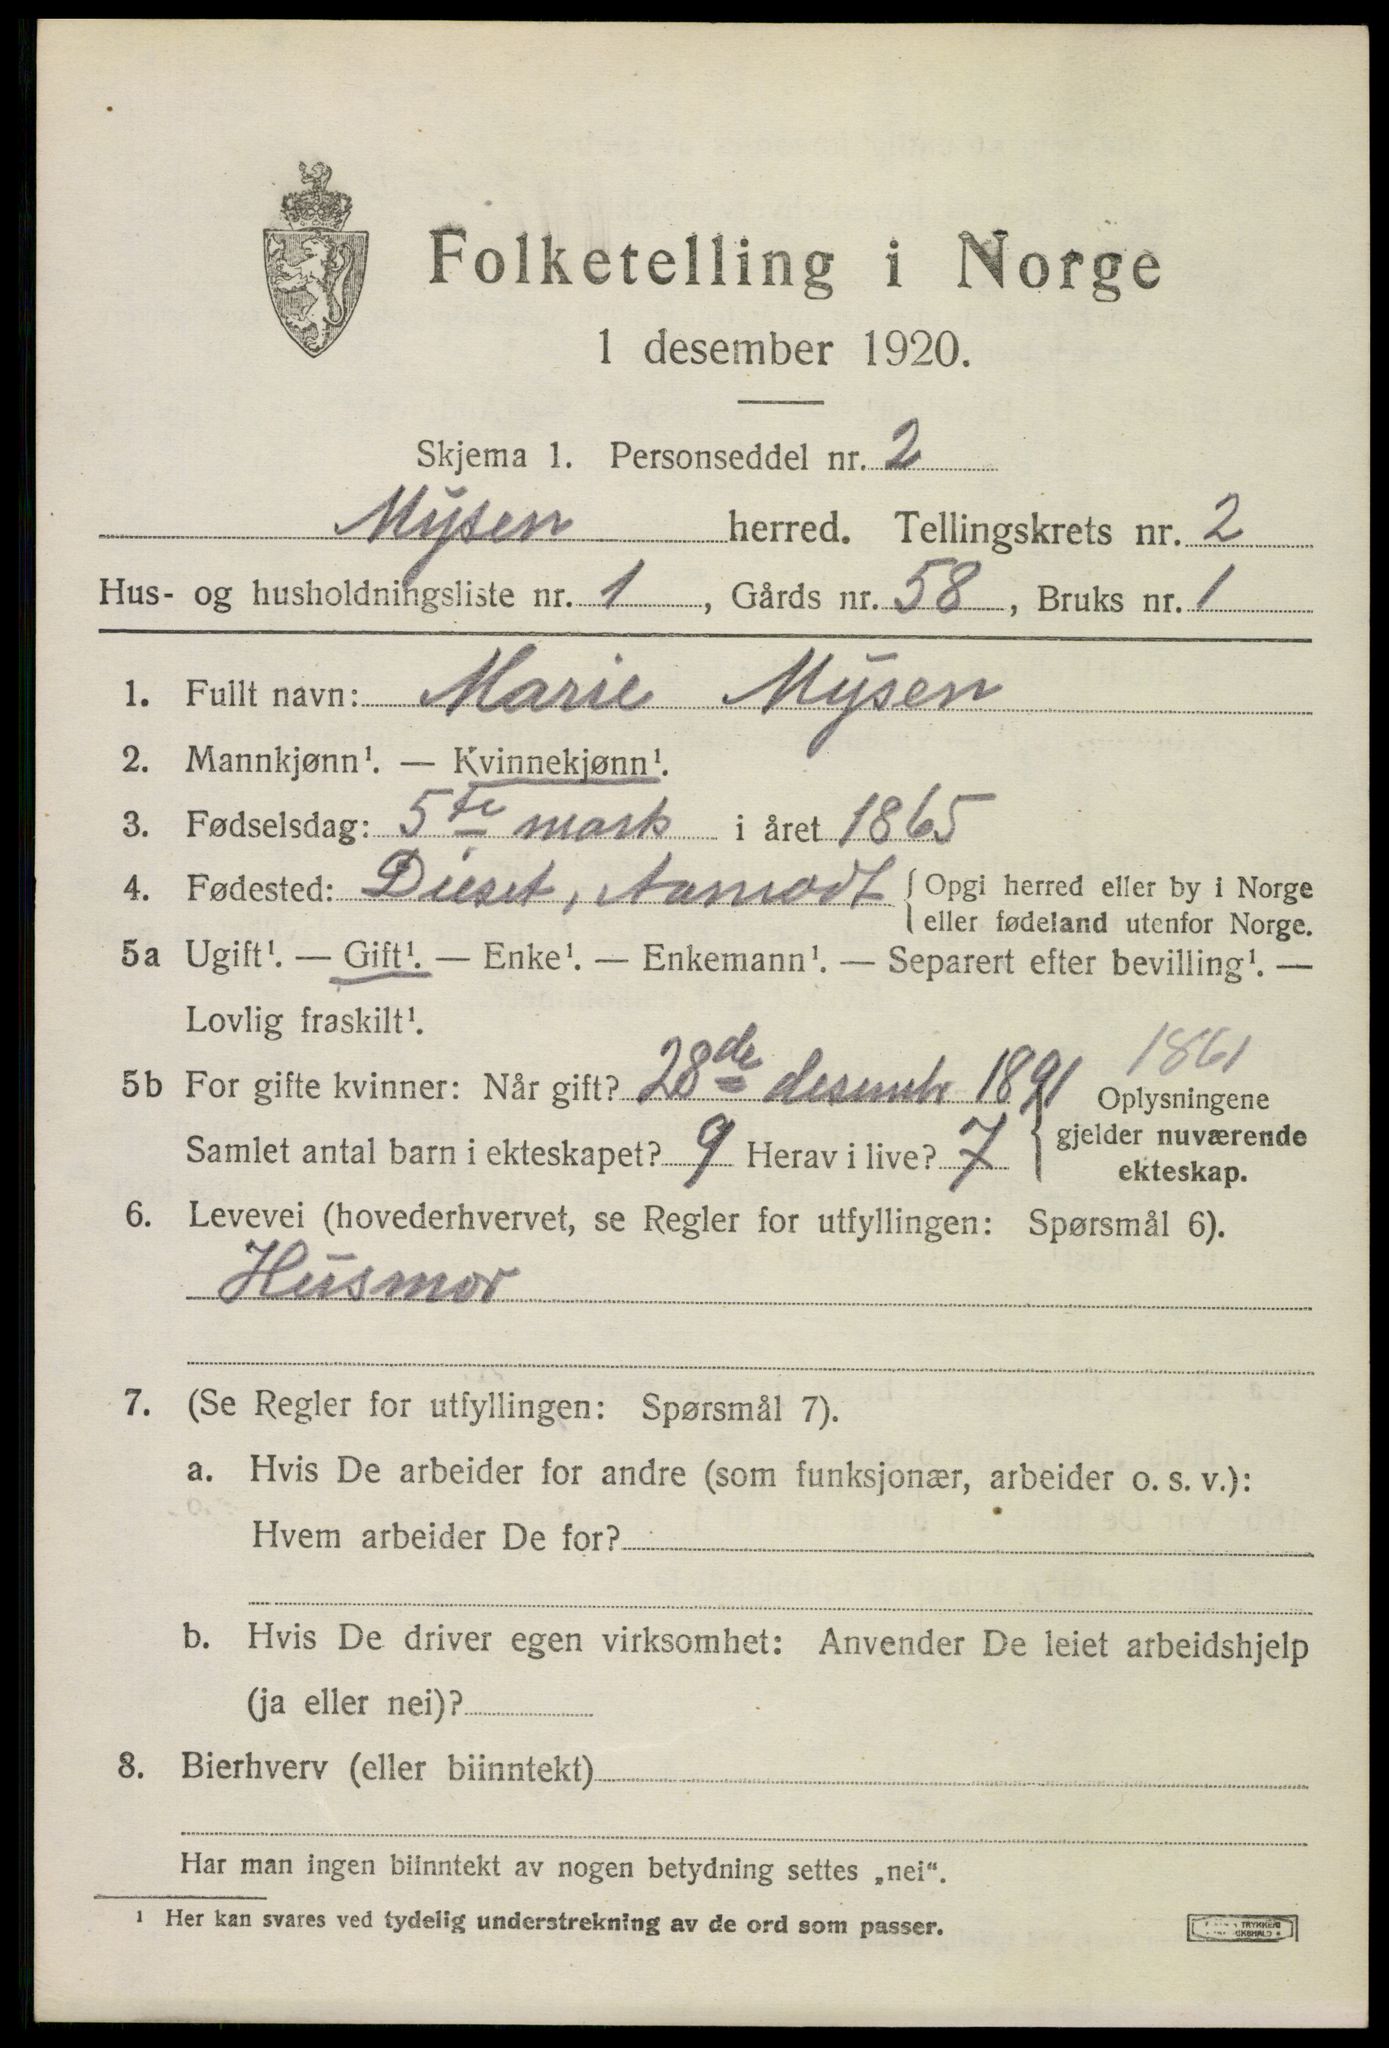 Folketelling i Norge
1 desember 1920.
Skjema 1. Personseddel nr. 2
Mysen herred. Tellingskrets nr. 2
Hus- og husholdningsliste nr. 1, Gårds nr. 58, Bruks nr. 1
1. Fullt navn: Marie Mysen
2. Mannkjønn¹. — Kvinnekjønn¹.
3. Fødselsdag: 5te mars i året 1865
4. Fødested: Dieset, Aamodt { Opgi herred eller by i Norge
eller fødeland utenfor Norge.
5a Ugift¹. — Gift¹. — Enke¹. — Enkemann¹. — Separert efter bevilling¹. —
Lovlig fraskilt¹.
1861
5b For gifte kvinner: Når gift? 28de desembr 1891 { Oplysningene
gjelder nuværende
Samlet antal barn i ekteskapet? 9 Herav i live? 7
ekteskap.
6. Levevei (hovederhvervet, se Regler for utfyllingen: Spørsmål 6).
Husmor
7. (Se Regler for utfyllingen: Spørsmål 7).
a. Hvis De arbeider for andre (som funksjonær, arbeider o. s. v.):
Hvem arbeider De for?
b. Hvis De driver egen virksomhet: Anvender De leiet arbeidshjelp
(ja eller nei)?
8. Bierhverv (eller biinntekt)
Har man ingen biinntekt av nogen betydning settes „nei“.
¹ Her kan svares ved tydelig understrekning av de ord som passer.